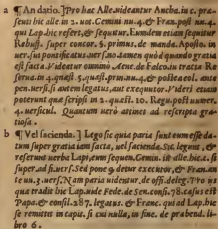 a ¶ An datio.] Pro hac Alle. uideantur Ancha. in c. præ
senti hic alle in 2. not. Gemini. nu. 4. & Fran. post nu. 4.
qui Lap. hic refert, & sequitur. Eundem etiam sequitur
Rebuff. super concor. §. primus. de manda. Aposto. in
uer. sui pontificatus ant sno damen quod quando gratia
est facta. Videatur omnino. Aene. de Falco. in tracta Re
serua. in 4. quæst. 5. quæst. prin. nu. 4. & postea eol. ante
pen. uersi. si autem legatus, aut exequutor. Videri etiam
poterunt quæ scripsi in 3. quæst. 10. Regu. post nume.
4. uersicul. Quantum uero attinet ad rescripta gra-
tiosa.
b ¶ Vel facienda.] Lego sic quia paria sunt eum esse da-
tum super gratia iam facta, uel facienda. Sic legunt, &
referunt uerba Lapi, eum sequen. Gemin. in alle. hic. a. si
super. ad fi. uers. Sed pone §. detur executor, & Fran. an
te nu. 3. uers. Nam paria uidentur, de offi. deleg. Pro his
quæ tradit hic Lap. uide Fede. de Sen. consi. 78. casus est
Papa. & consil. 287. legatus. & Franc. qui ad Lap. hic
se remittit in capit. si cui nulla, in fine. de præbend. li-
bro 6.